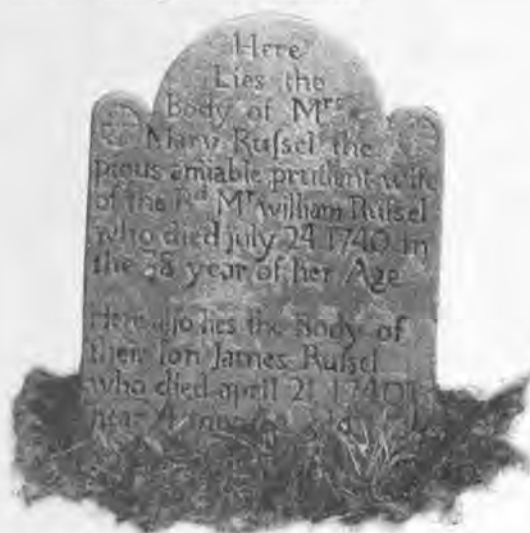 Here
Lies the
Body of Mrs
Mary Ruſsel the
pious amiable prudent wife
of the Rd Mr william Ruſsel
who died july 24 1740 in
the 38 year of her Age
Here also lies the Body of
their ſon James Ruſsel
who died april 21 1740
near 4 months old